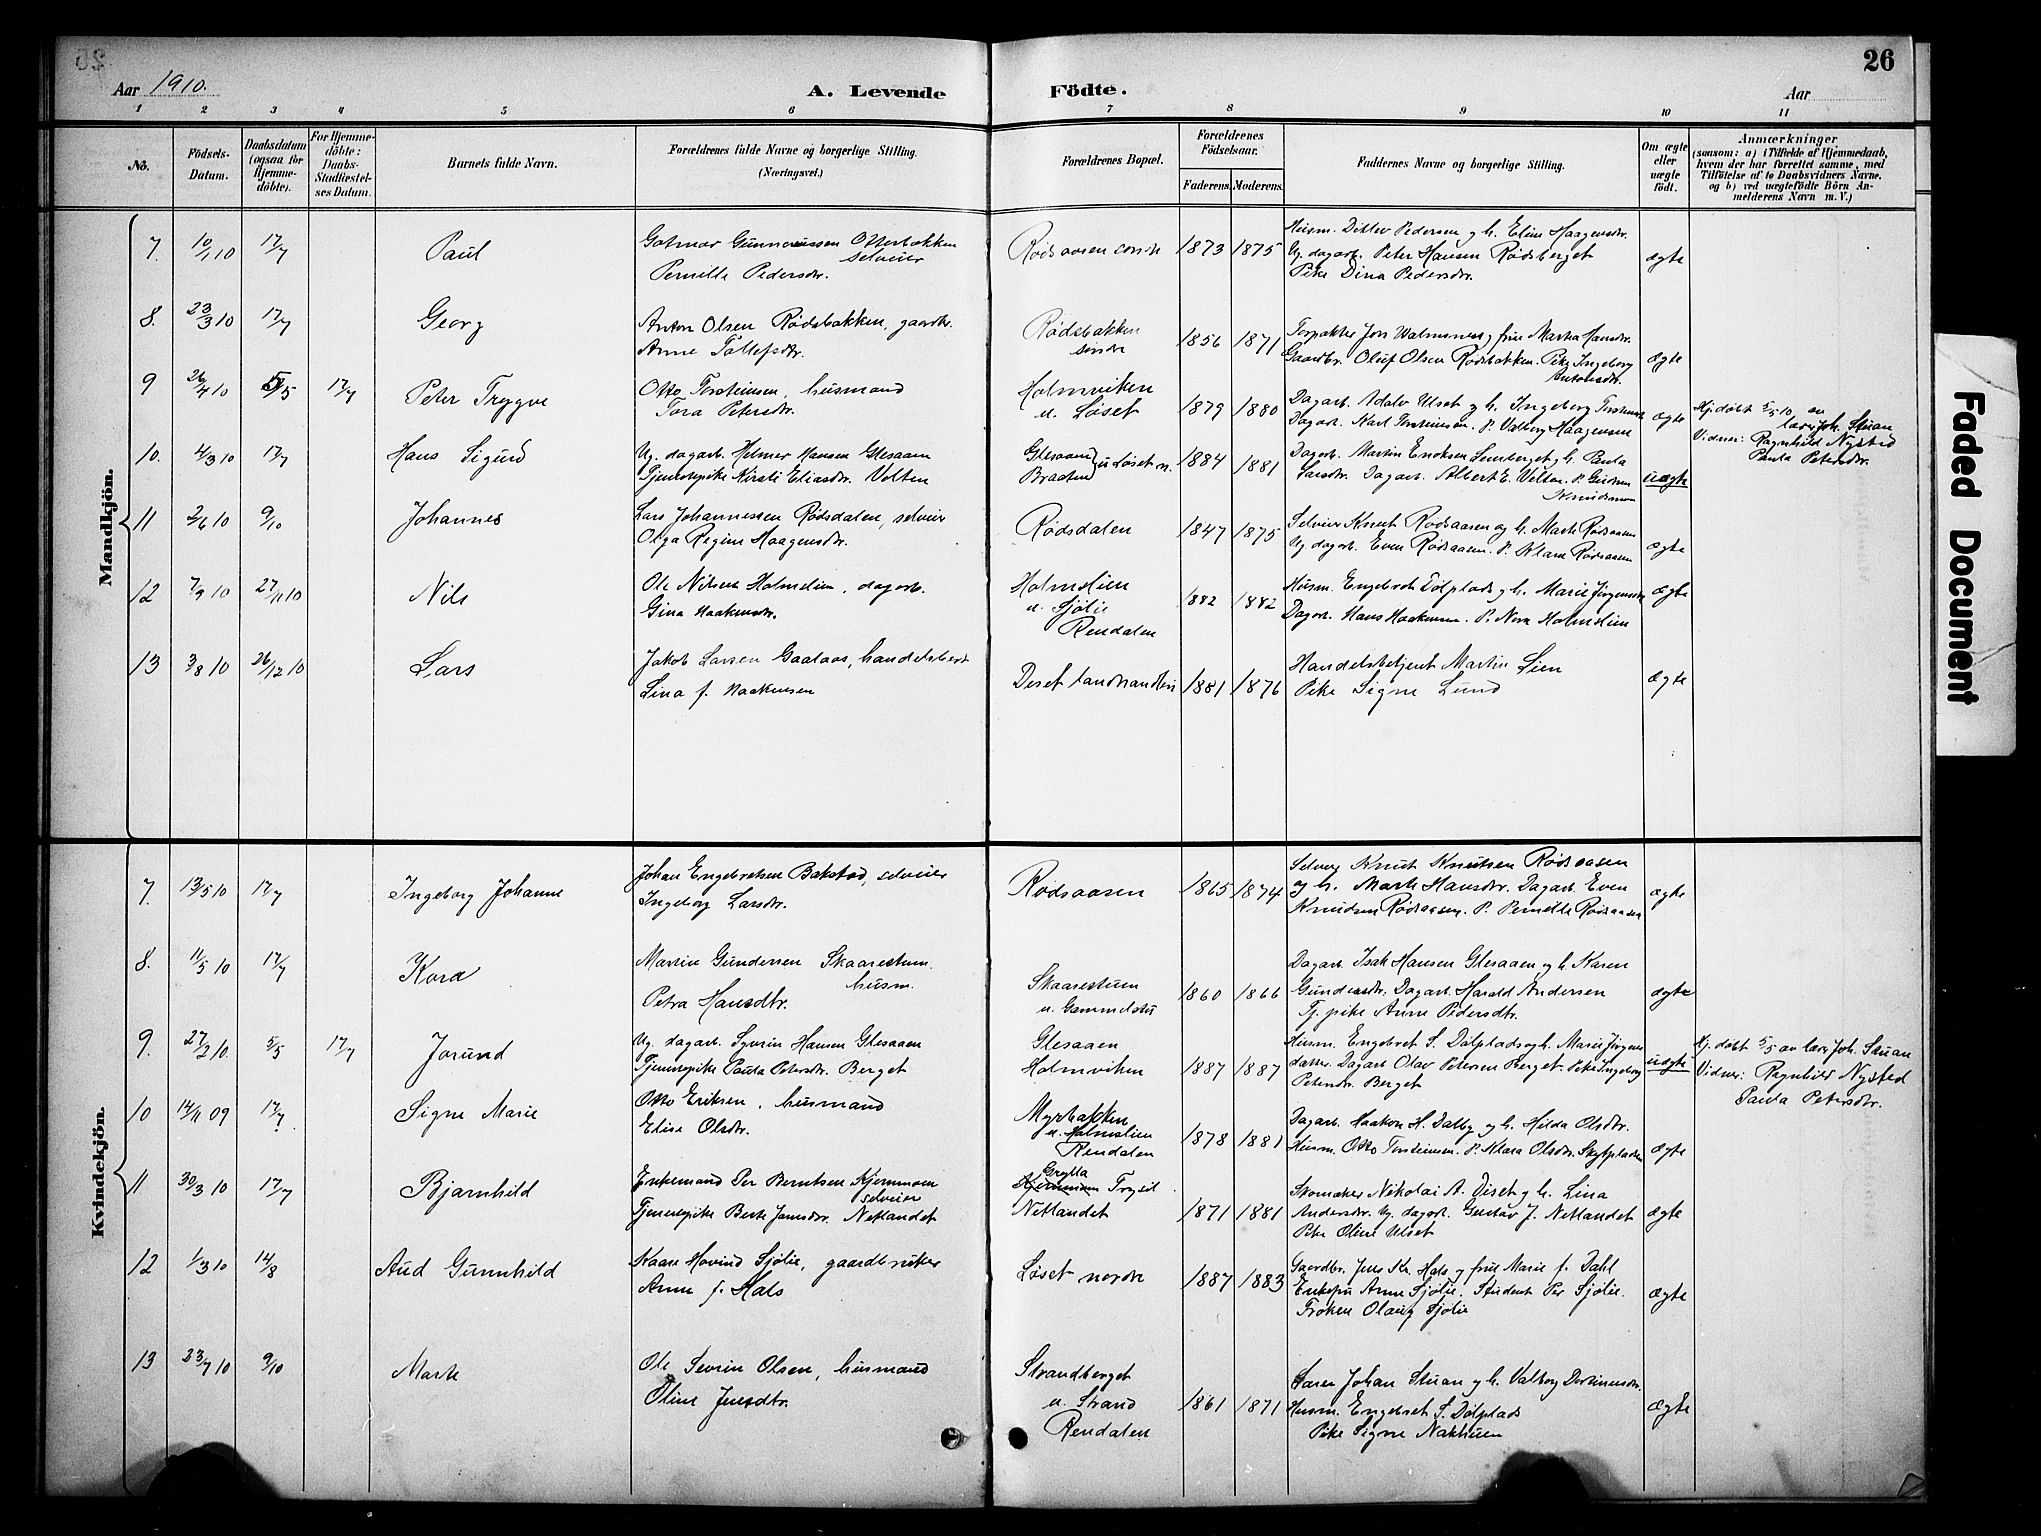 26
Aar 1910.
A. Levende Födte.
Aar
1 2 3 4 5 6 7 8 9 10 11
No.
Födsels-Datum.
Daabsdatum (ogsaa for Hjemme-döbte).
For Hjemme-döbte: Daabs-Stadfæstel-ses Datum.
Barnets fulde Navn.
Forældrenes fulde Navne og borgerlige Stilling.
(Næringsvei.)
Forældrenes Bopæl.
Forældrenes Födselsaar.
Faderens. Moderens.
Faddernes Navne og borgerlige Stilling.
Om ægte eller uægte födt.
Anmærkninger
(saasom: a) i Tilfælde af Hjemmedaab,
hvem der har forrettet samme, med
Tilföielse af to Daabsvidners Navne.
og b) ved uægtefödte Börn An-
melderens Navn m. V.)
Mandkjön.
7. 10/1 10 17/7 Paul
Gunnerussen Otterbakken
selveier
Pernelle Pedersdtr.
Rødsaasen søndre 1873 1875
Husm. Ditlev Pedersen og h. Eline Haagensdtr.
Ug. dagarb. Peter Hansen Rødsberget
Pike Dina Pedersdtr.
ægte
8. 23/3 10 17/7 Georg
Anton Olsen Rødsbakken, gaardbr.
Anne Tollefsdtr.
Rødsbakken
søndre
1856 1871
Forpakter Jon Walmsnes og frue Martha Hansdtr.
Gaardbr. Oluf Olsen Rødsbakken. Pike Ingeborg
Antonsdtr.
ægte
9 26/4 10 5/5 17/7 Peter Trygve
Otto Torsteinsen, husmand
Tora Petersdtr.
Holmviken
u. Løset
1879 1880
Dagarb. Adolv Ulset og h. Ingeborg
Dagarb. Karl Torsteinsen. P. Valborg Haagensen
ægte
Hj.døbt 5/5 10 av
lærer Joh. Stuan
Vidner: Ragnhild Nysted
Paula Petersdtr.
10. 4/3 10 17/7 Hans Sigurd
Ug. dagarb. Helmer Hansen Glesaaen
Tjenestepike Kirsti Eliasdtr. Velten
Glesaaen
Braaten u. Løset n.
1884 1881
Dagarb. Martin Eriksen Lemberget og h. Paula
Larsdtr. Dagarb. Albert E. Velten. P.
Knudsen
uægte
11 2/6 10 9/10 Johannes
Lars Johannessen Rødsdalen, selveier
Olga Regine Haagensdtr.
Rødsdalen 1847 1875
Selveier Knut Rødsaasen og h. Marte Rødsaasen
Ug dagarb. Even Rødsaasen. P. Klara Rødsaasen
ægte
12 7/9 10 27/11 10 Nils
Ole Nilsen Holmslien, dagarb.
Gina Haakensdtr.
Holmslien
u. Sjølie
Rendalen
1882 1882
Husm. Engebret Dølplads og h. Marie Jørgensdtr
Dagarb. Hans Haakensen. P. Nora Holmslien
ægte
13 3/8 10 26/12 10 Lars
Jakob Larsen Gaalaas, handelsbest
Lina f. Haakensen
Deset landhandleri 1881 1876
Handelsbetjent Martin Lien
Pike Signe Lund
ægte
Kvindekjön.
7. 13/5 10 17/7 Ingeborg Johanne
Johan Engebretsen Bakstad, selveier
Ingeborg Larsdtr.
Rødsaasen 1865 1874
Selveier Knut Knutsen Rødsaasen
og h. Marte Hansdtr. Dagarb. Even
Knudsen Rødsaasen. P. Pernelle Rødsaasen
ægte
8. 11/5 10 17/7 Kora
Martin Gundersen Skaarestuen.
husm.
Petra Hansdtr.
Skaarestuen
u. Gammelstu
1860 1866
Dagarb. Isak Hansen Glesaaen og h. Karen
Gundersdtr. Dagarb. Harald Andersen
Tj. pike Anne Pedersdtr.
ægte
9. 27/2 10. 5/5 17/7 Jorund
Ug. dagarb. Syvrin Hansen Glesaaen
Tjenestepike Paula Petersdtr. Berget
Glesaaen
Holmviken
1887 1887
Husm. Engebret S. Dølplads og h. Marie Jørgens
datter. Dagarb Olav Petersen Berget. Pike Ingeborg
Petersdtr. Berget
uægte
Hj. døbt 5/5 av lærer Joh. Stuan
Vidner: Ragnhild Nysted
Paula Petersdtr.
10 14/11 09 17/7 Signe Marie
Otto Eriksen, husmand
Elise Olsdtr.
Myrbakken
u. Holmslien
Rendalen
1878 1881
Dagarb. Haakon H. Dalby og h. Hilda Olsdtr.
Husm. Otto Torsteinsen. P. Klara Olsdtr. Skytpladsen
ægte
11 30/3 10 17/7 Bjarnhild
Enkemand Per Berntsen Kjernmoen
selveier
Tjenestepike Berte Jonsdtr. Netlandet
Grylla
Kjernmoen Trysil.
Netlandet
1871 1881
Skomaker Nikolai A. Diset og h. Lina
Andersdtr. Ug. dagarb. Gustav J. Netlandet
Pike Oline Ulset
ægte
12 1/3 10 14/8 Aud Gunnhild
Kaare Hovind Sjølie, gaardbruker
Anne f. Hals
Løset nordre 1887 1883
Gaardbr. Jens Kr. Hals og frue Marie f. Dahl
Enkefru Anne Sjølie. Student Per Sjølie.
Frøken Olaug Sjølie
ægte
13 23/7 10 9/10 Marte
Ole Sevrin Olsen, husmand
Oline Jensdtr.
Strandberget
u. Strand
Rendalen
1861 1871
Lærer Johan Stuan og h. Valborg
Husm. Engebret S. Dølplads
Pike Signe Nakhuen
ægte
Faded Document